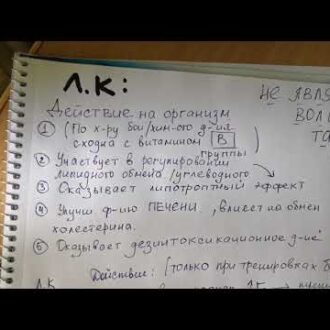 Л.К:
НЕ ЯВЛЯ
ВОЛ
ТА
Действие на организм
① (По х-ру био/хим-ого д-ия
сходна с витамином В )
группы
② Участвует в регулировании
липидного обмена /углеводного
③ Оказывает липотропный эффект
④ Улучш ф-ию ПЕЧЕНИ, влияет на обмен
холестерина.
⑤ Оказывает дезинтоксикационное д-ие
Действие: (только при тренировках б
Л.К